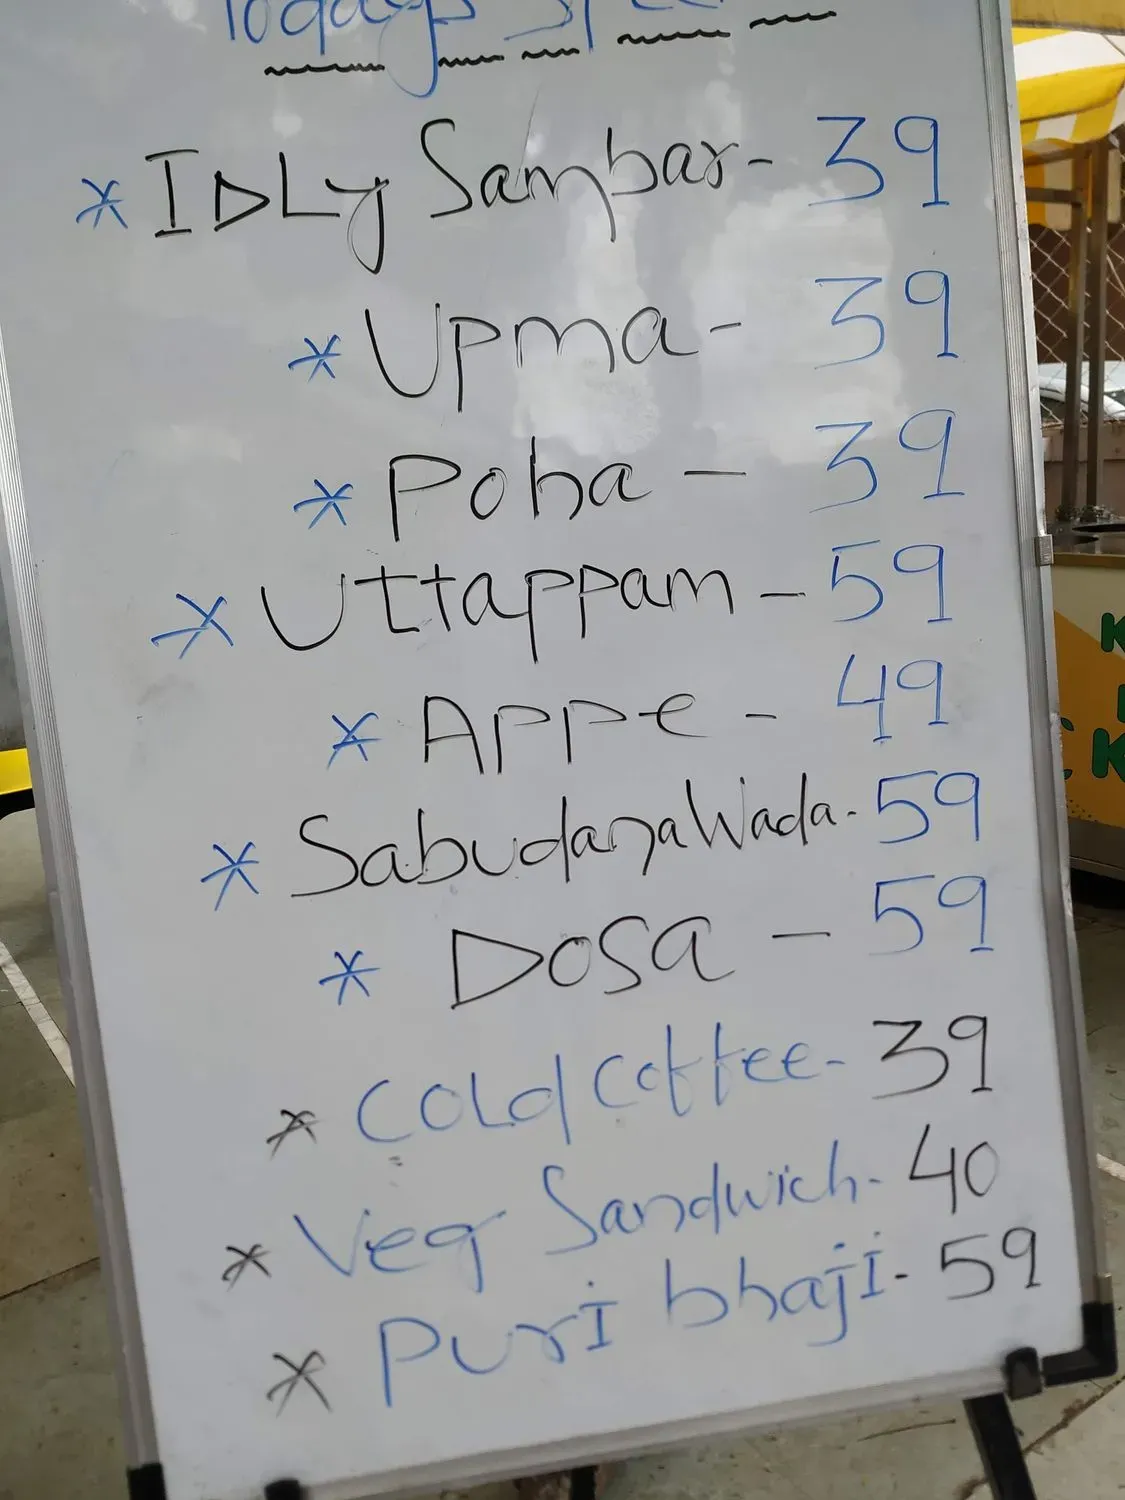 Todays
* IDLy Sambar - 39
* Upma - 39
* Poha - 39
* Uttappam - 59
* Appe - 49
* Sabudana Wada - 59
* Dosa - 59
* Cold Coffee - 39
* Veg Sandwich - 40
* Puri bhaji - 59